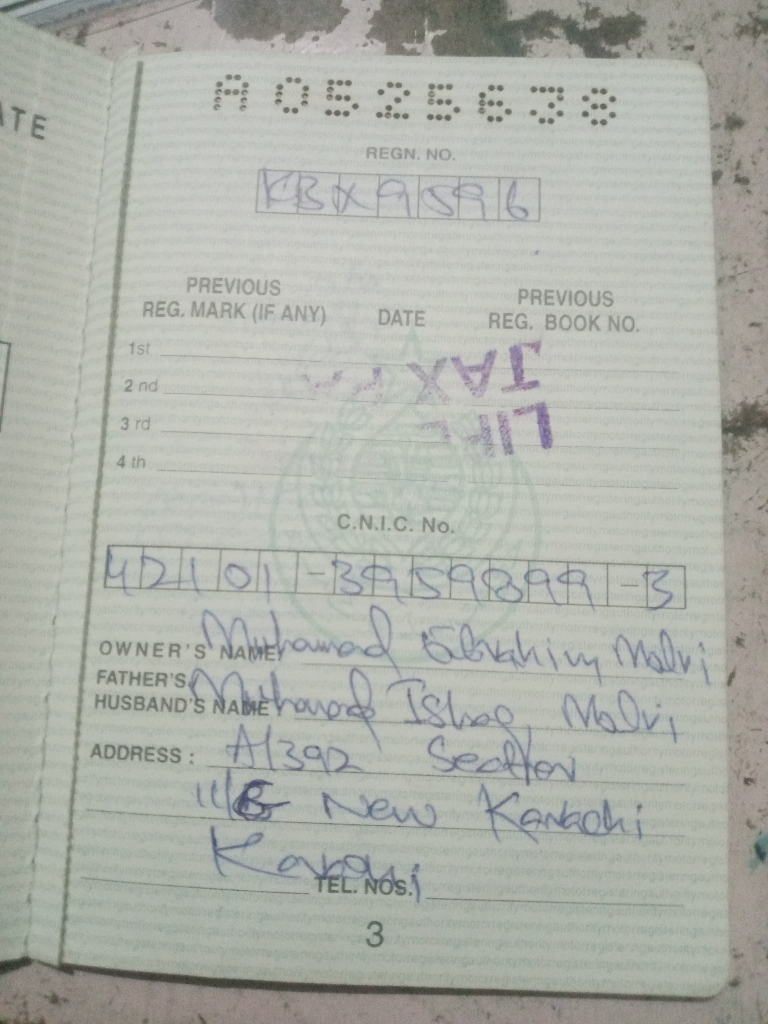 ATE
A0525638
REGN. NO.
KBX9596
PREVIOUS REG. MARK (IF ANY) DATE PREVIOUS REG. BOOK NO.
1st
TAX
2 nd
3 rd
4 th
C.N.I.C. No.
42101-3959899-3
OWNER'S NAME Muhamad Ebrahim Malvi
FATHER'S
HUSBAND'S NAME Muhamad Ishaq Malvi
ADDRESS : A/392 Section
New Karachi
Karachi
TEL. NOS.
3